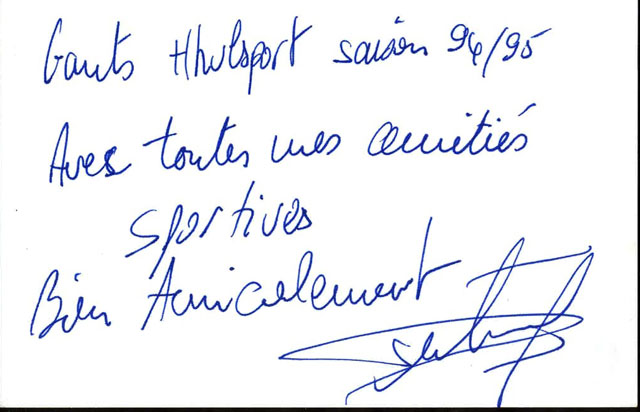 Gants Hhulsport saison 94/95
Avec toutes mes amitiés
sportives
Bien Amicalement